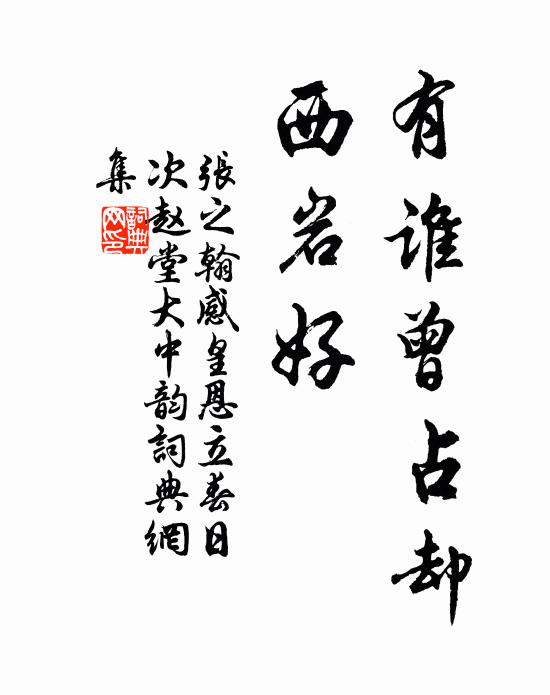 有誰曾占却
西岩好
張之翰感皇恩立春日
次赵堂大中韵詞典網
集
詞典
网印